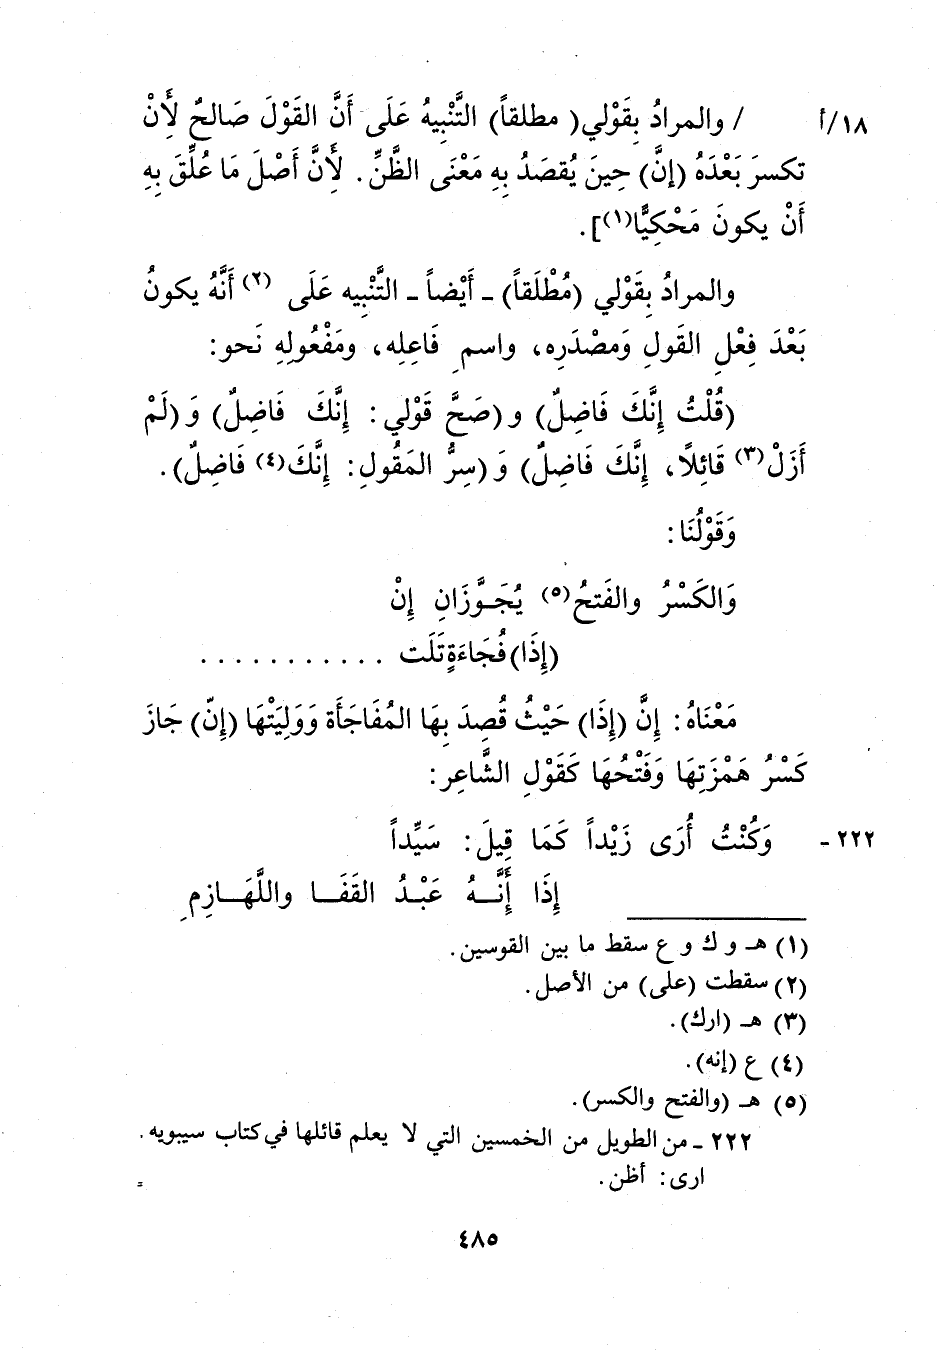 ١٨/أ / والمرادُ بِقَوْلي( مطلقاً) التَّنْبِيهُ عَلَى أَنَّ القَوْلَ صَالحٌ لِأَنْ
تكسرَ بَعْدَهُ (إنَّ) حِينَ يُقصَدُ بِهِ مَعْنَى الظَّنِّ. لِأَنَّ أَصْلَ مَا عُلِّقَ بِهِ
أَنْ يكونَ مَحْكِيًّا(١)].
والمرادُ بِقَوْلي (مُطْلَقاً) ـ أَيْضاً ـ التَّنْبِيه عَلَى (٢) أَنَّهُ يكونُ
بَعْدَ فِعْلِ القَولِ وَمصْدَرِه، واسمِ فَاعِلِه، ومَفْعُولِهِ نَحو:
(قُلْتُ إِنَّكَ فَاضِلٌ) و (صَحَّ قَوْلي: إِنَّكَ فَاضِلٌ) وَ (لَمْ
أَزَلْ(٣) قَائِلًا، إِنَّكَ فَاضِلٌ) وَ (سِرُّ المَقُولِ: إِنَّكَ(٤) فَاضِلٌ).
وَقَوْلُنَا:
وَالكَسْرُ والفَتحُ(٥) يُجَـوَّزَانِ إِنْ
(إِذَا) فُجَاءَةٍ تَلَت . . . . . . . . . . .
مَعْنَاهُ: إِنَّ (إِذَا) حَيْثُ قُصِدَ بِهَا المُفَاجَأَة وَوَلِيَتْهَا (إِنّ) جَازَ
كَسْرُ هَمْزَتِهَا وَفَتْحُهَا كَقَوْلِ الشَّاعِر:
٢٢٢ ـ وَكُنْتُ أُرَى زَيْداً كَمَا قِيلَ: سَيِّداً
إِذَا أَنَّـهُ عَبْـدُ القَفَـا واللَّهَـازِمِ
(١) هـ و ك و ع سقط ما بين القوسين.
(٢) سقطت (على) من الأصل.
(٣) هـ (ارك).
(٤) ع (إنه).
(٥) هـ (والفتح والكسر).
٢٢٢ ـ من الطويل من الخمسين التي لا يعلم قائلها في كتاب سيبويه.
ارى: أظن. =
٤٨٥